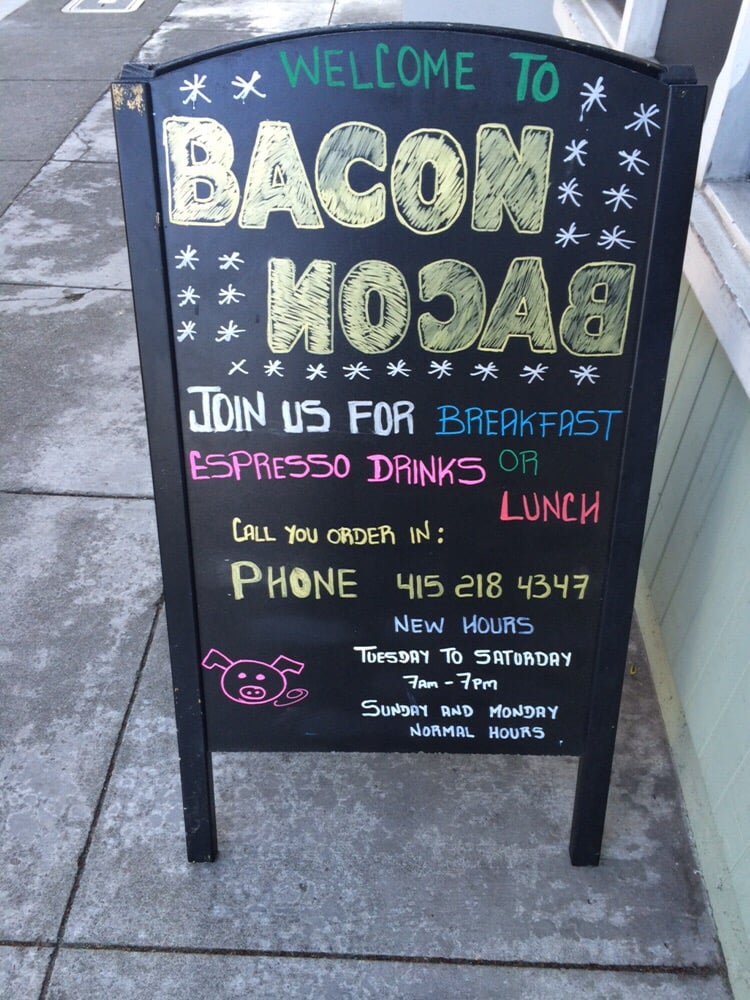 WELCOME TO
BACON
BACON
JOIN US FOR BREAKFAST
ESPRESSO DRINKS OR
LUNCH
CALL YOU ORDER IN:
PHONE 415 218 4347
NEW HOURS
TUESDAY TO SATURDAY
7AM - 7PM
SUNDAY AND MONDAY
NORMAL HOURS